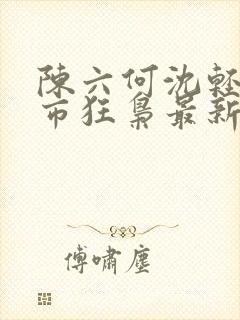 陳六何沈輕
市狂梟最新
傅嘯塵